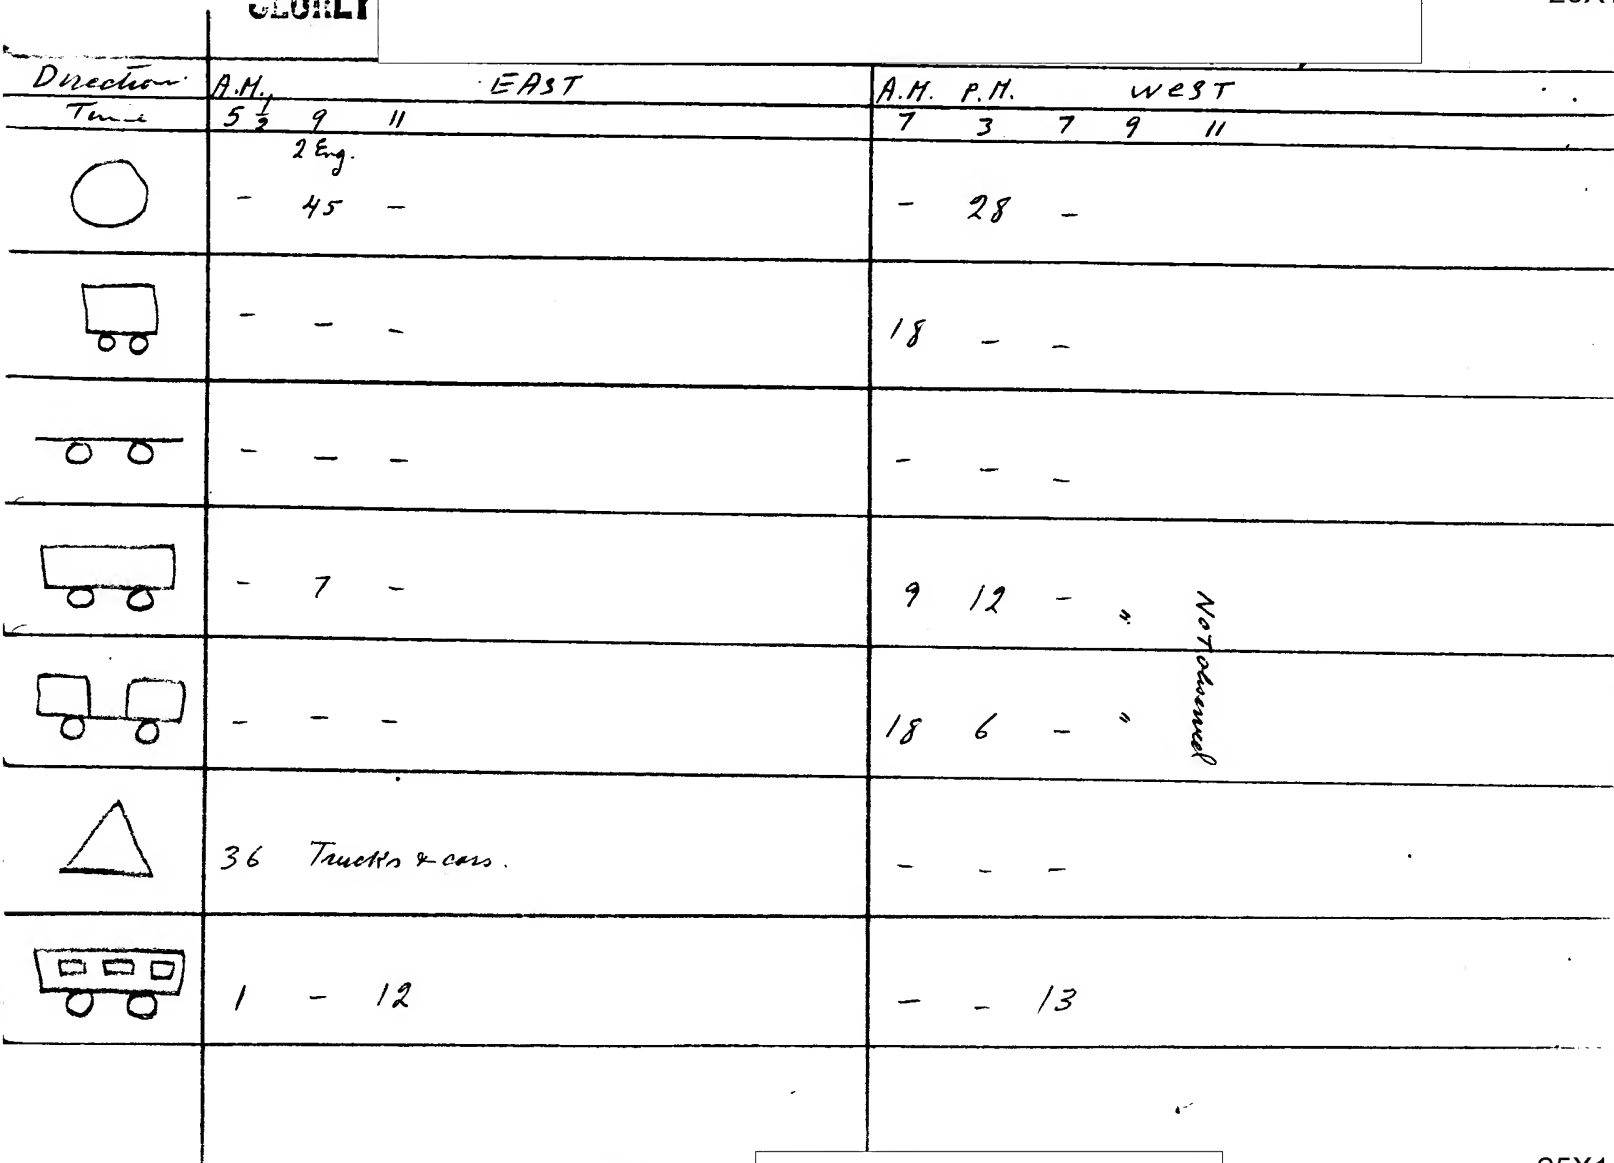 Direction A.M. EAST A.M. P.M. WEST
Time 5 1/2 9 11 7 3 7 9 11
2 Eng.
- 45 - - 28 -
- - - 18 - -
- - - - - -
- 7 - 9 12 - "
- - - 18 6 - "
Not observed
36 Trucks & cars. - - -
1 - 12 - - 13